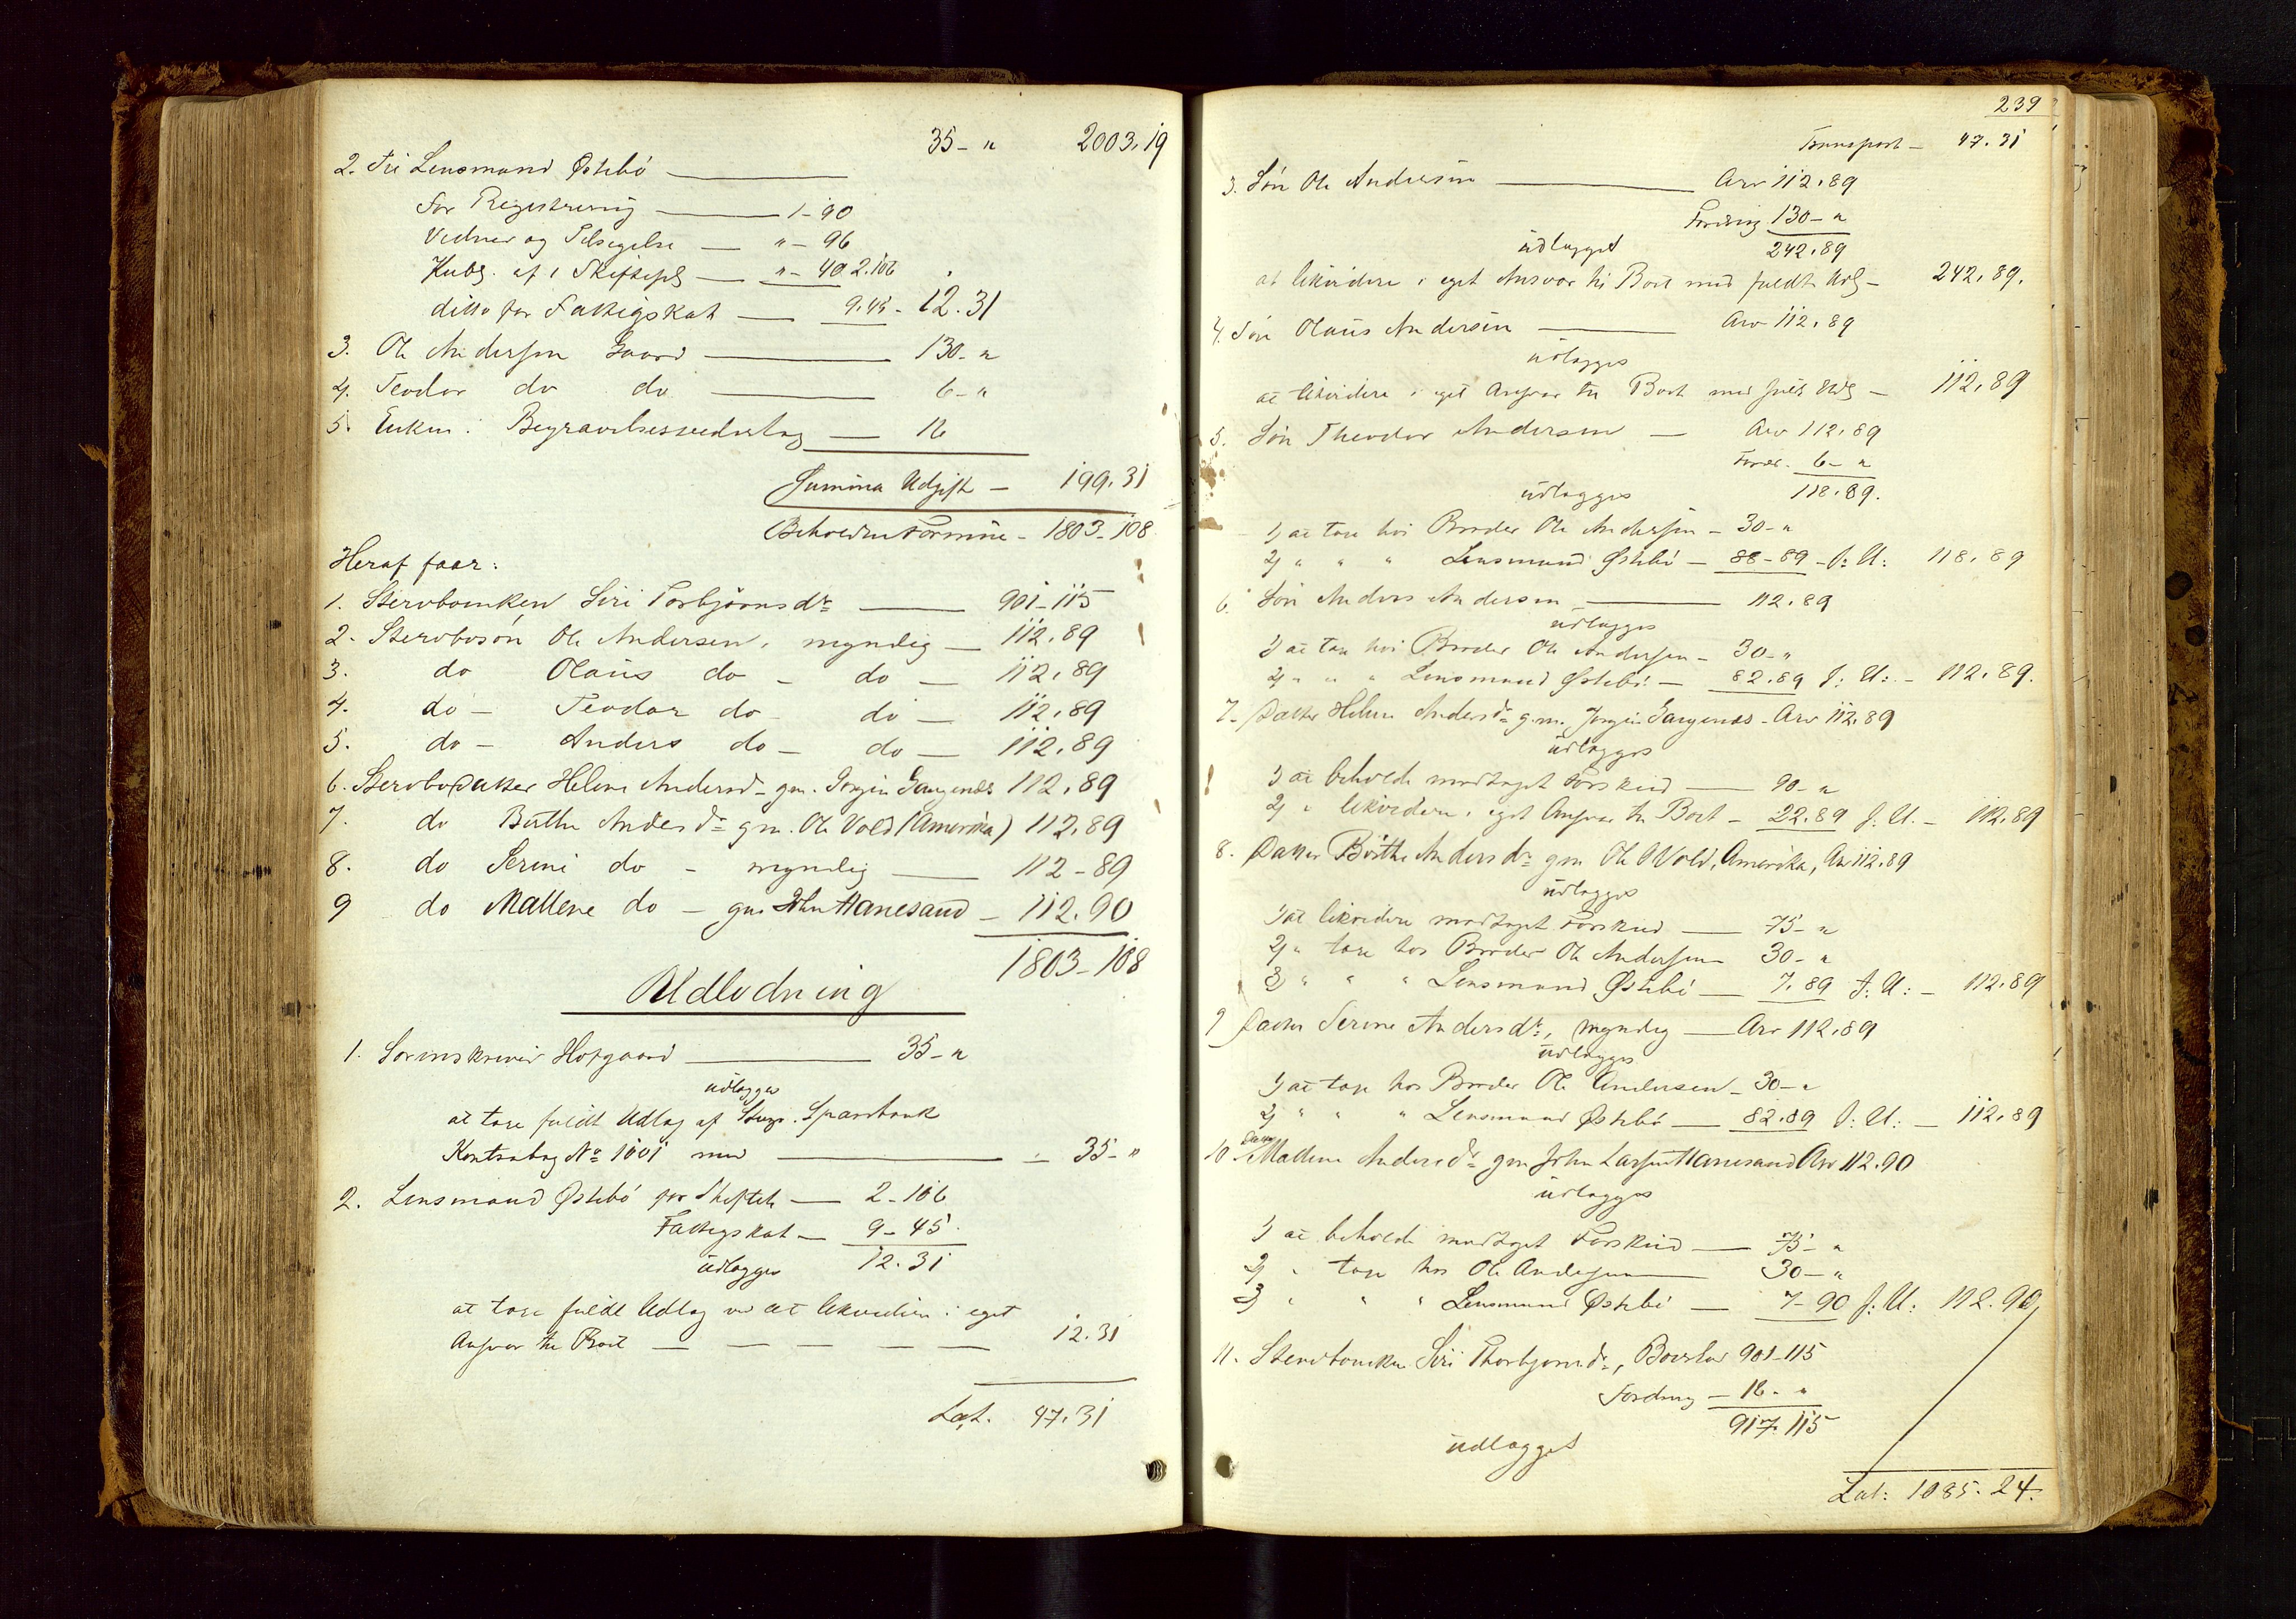 35 - " 2003.19
2. Til Lensmand Østebø
For Registrering 1 - 90
Vedner og Tilsigelse " - 96
Kubg. af 1 Skiftepg " - 40 2.106
ditto for Fattigskat 9.45 - 12.31
3. Ole Andersen Gaard 130 - "
4. Teodor do do 6 - "
5. Enken i Begravelsesvederlag 16
Summa Udgift - 199.31
Beholden Formue - 1803 - 108
Heraf faar:
1. Stervboenken Siri Torbjørnsdr 901 - 115
2. Stervbosøn Ole Andersen, myndig 112.89
3. do Olaus do - do 112.89
4. do - Teodor do do 112.89
5. do - Anders do - do 112.89
6. Stervbodatter Helene Andersd gm. Jørgen 112.89
7. do Berthe Andersdr gm. Ole Vold (Amerika) 112.89
8. do Serine do - myndig 112 - 89
9 do Mallene do - gm John Hanesand - 112.90
1803 - 108
Udlodning
1. Sorenskriver Hofgaard 35 - "
udlægges
at tage fuldt Udlæg af Sparebank
Kontrabog No 1001 med - 35 - "
2. Lensmand Østebø for Skiftet 2 - 106
Fattigskat 9 - 45
udlægges 12.31
at tage fuldt Udlæg ved at likvidere i eget
Ansvar til Boet 12.31
Lat. 47.31
239
Transport - 47.31
3. Søn Ole Andersen Arv 112.89
Fordring 130 - "
udlægget 242.89
at likvidere i eget Ansvar til Boet med fuldt Udlg - 242.89.
4. Søn Olaus Andersen Arv 112.89
udlægges
at likvidere i eget Ansvar til Boet med fuldt Udlg - 112.89
5. Søn Theodor Andersen - Arv 112.89
Fordr. 6 - "
udlægges 118.89.
1) at tage hos Broder Ole Andersen - 30 - "
2) " " " Lensmand Østebø - 88 - 89 - f: U: 118.89
6. Søn Anders Andersen 112.89
udlægges
1) at tage hos Broder Ole Andersen - 30 - "
2) " " " Lensmand Østebø - 82.89 f: U: - 112.89.
7. Datter Helene Andersdr g.m. Jørgen - Arv 112.89
udlægges
1) at beholde modtaget Forskud 90 - "
2) " likvidere i eget Ansvar til Boet - 22.89 f. U. - 112.89
8. Datter Berthe Andersdr gm Ole O Vold, Amerika, Arv 112.89
udlægges
1) at likvidere modtaget Forskud 75 - "
2) " tage hos Broder Ole Andersen 30 - "
3) " " " Lensmand Østebø 7.89 f: U: - 112.89
9 Datter Serine Andersdr, myndig Arv 112.89
udlægges
1) at tage hos Broder Ole Andersen - 30 - "
2) " " " Lensmand Østebø 82.89 f: U: - 112.89
10 Datter Mallene Andersdr gm John Larsen Hanesand Arv 112.90
udlægges
1) at beholde modtaget Forskud 75 - "
2) " tage hos Ole Andersen 30 - "
3) " " " Lensmand Østebø 7 - 90 f: U: 112.90
11. Stervboenken Siri Thorbjørnsdr, Boeslod 901 - 115
Fordring - 16 - "
917.115
udlægget
Lat: 1085.24.